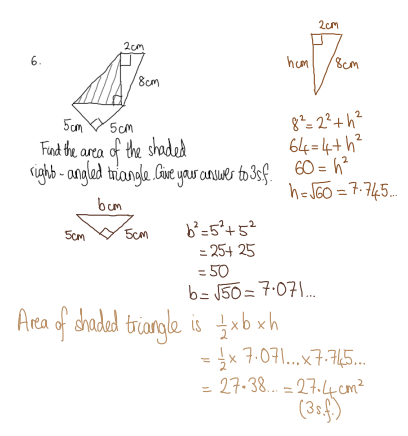 2cm
6.
8cm
5cm 5cm
Find the area of the shaded
right-angled triangle. Give your answer to 3s.f.
2cm
hcm 8cm
8² = 2² + h²
64 = 4 + h²
60 = h²
h = √60 = 7.745...
bcm
5cm 5cm
b² = 5² + 5²
= 25 + 25
= 50
b = √50 = 7.071...
Area of shaded triangle is ½ × b × h
= ½ × 7.071... × 7.745...
= 27.38... = 27.4 cm²
(3s.f.)